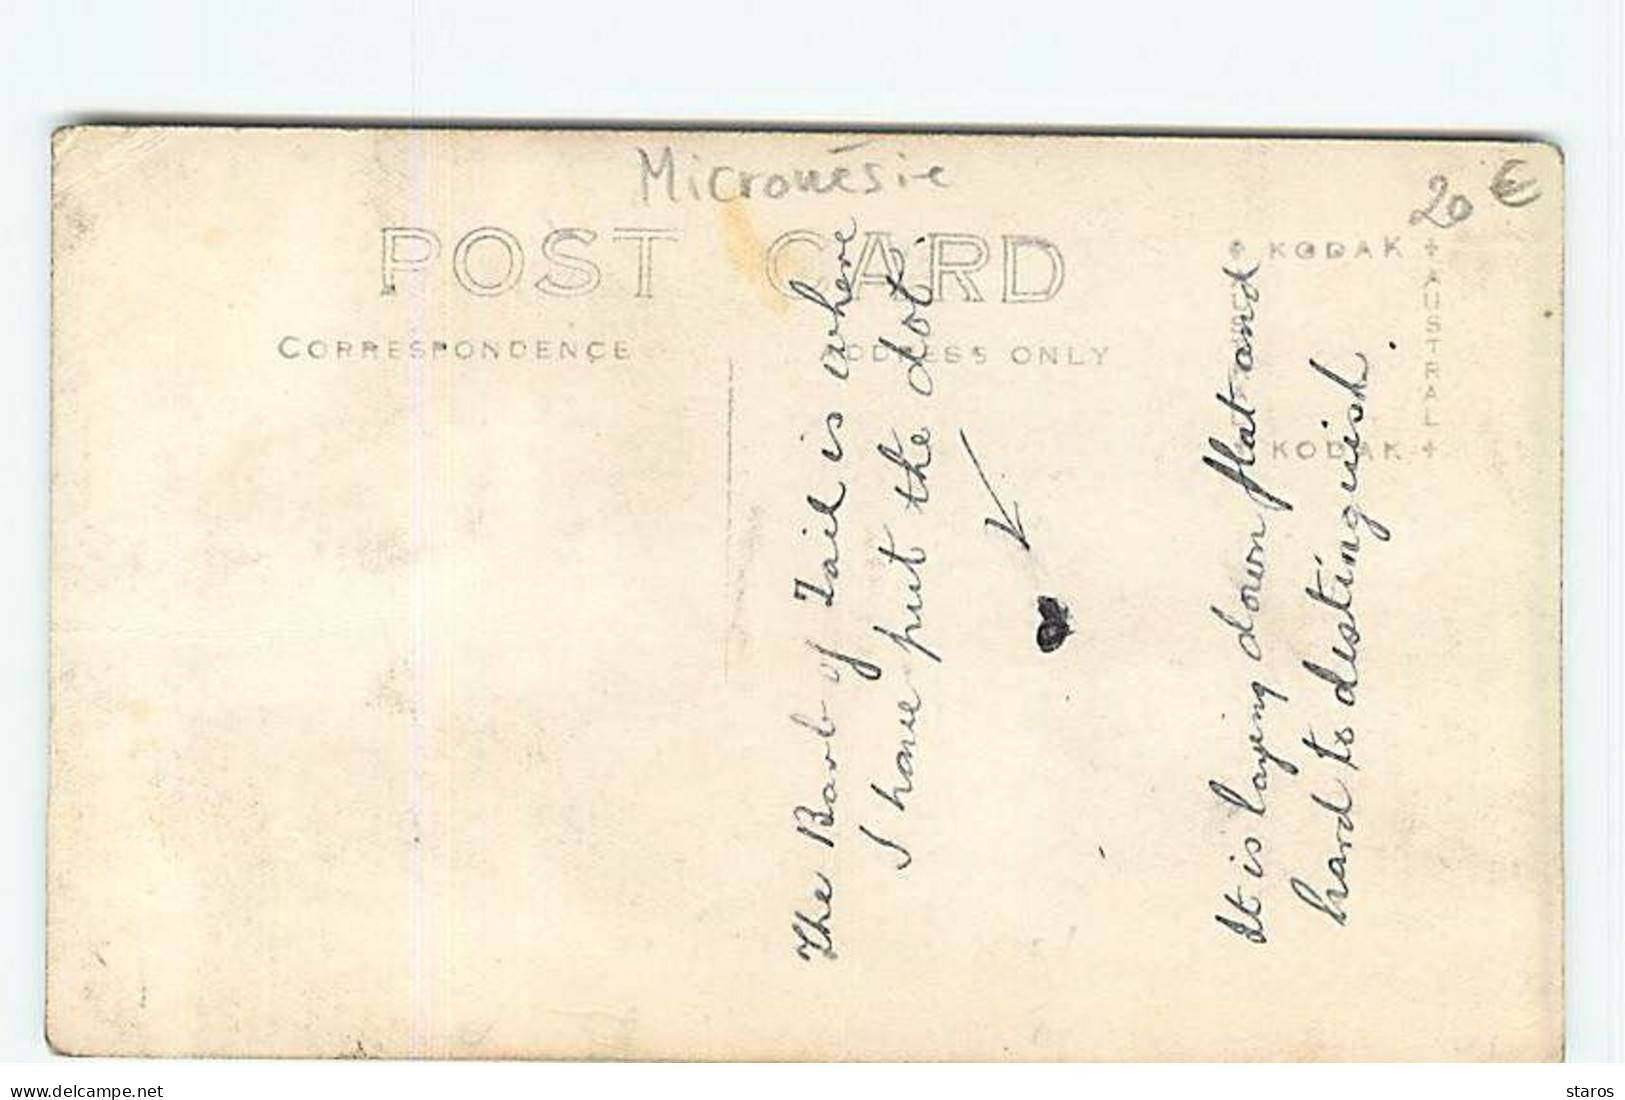 Micronésie
20 €
POST CARD
CORRESPONDENCE
ADDRESS ONLY
KODAK
AUSTRAL
KODAK
The Barb of Tail is where
I have put the dot
It is laying down flat and
hard to distinguish.
delcampe.net
staros